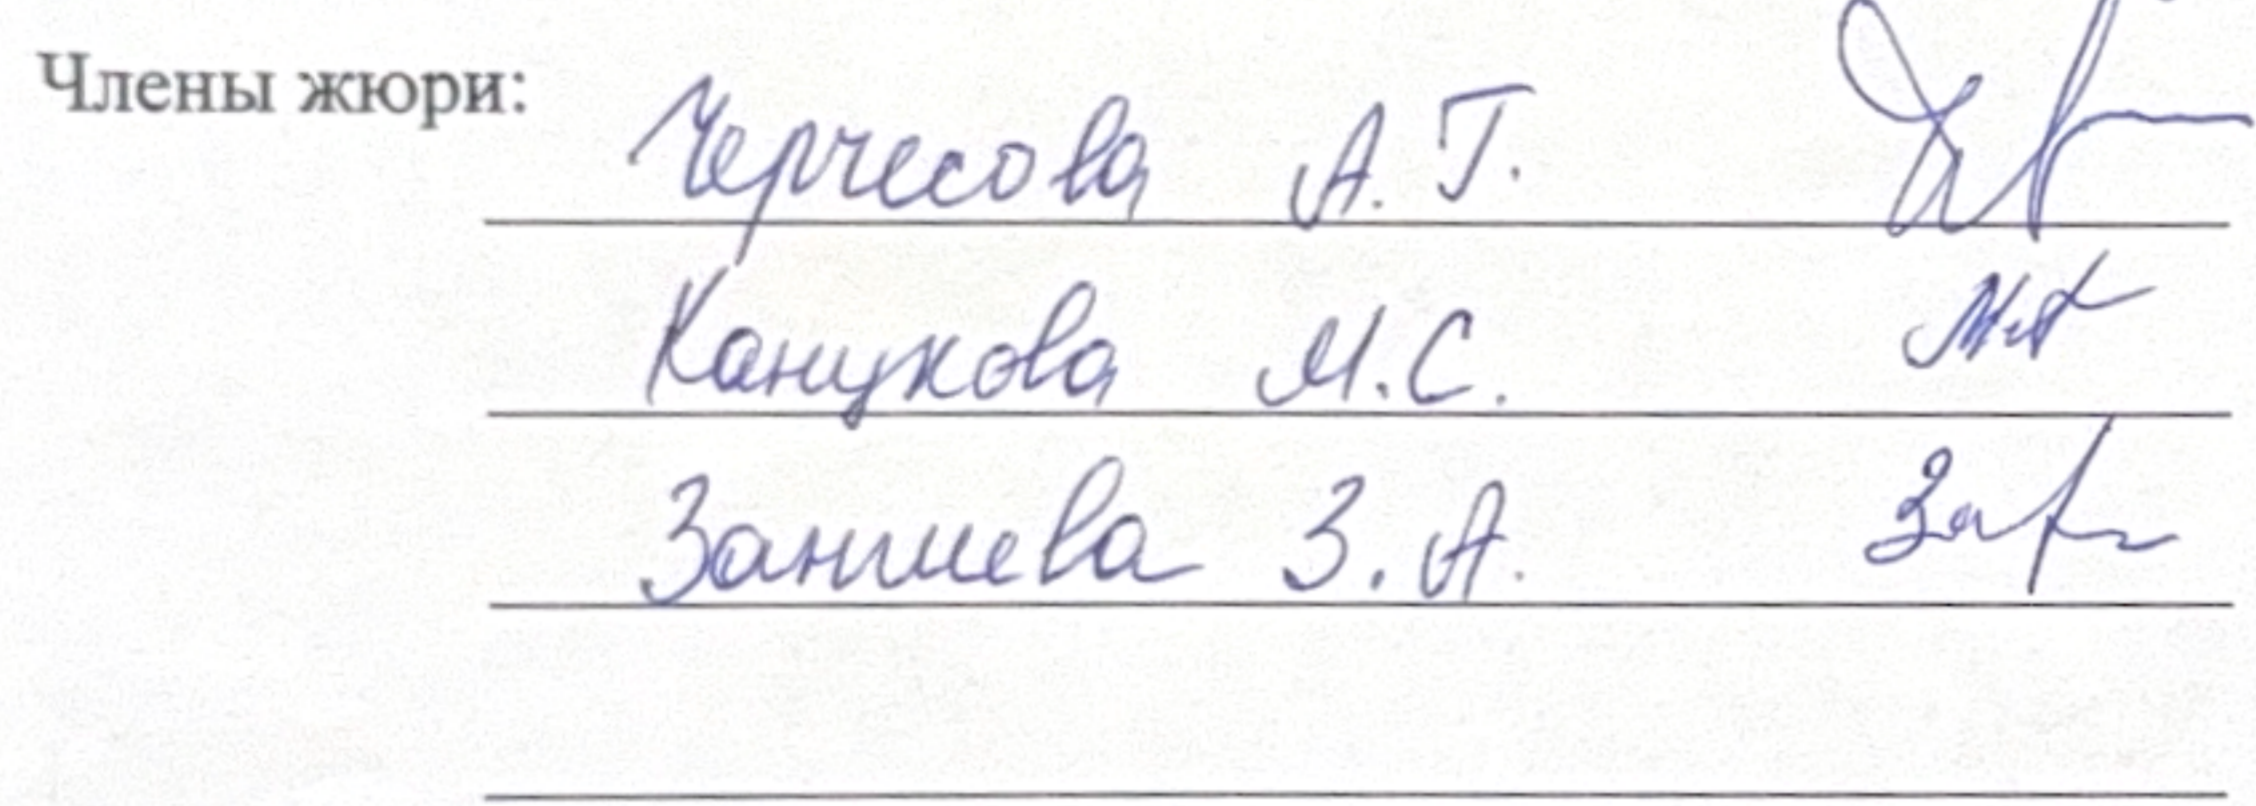 Члены жюри: Черчесова А. Г.
Канукова М. С.
Зангиева З. А.